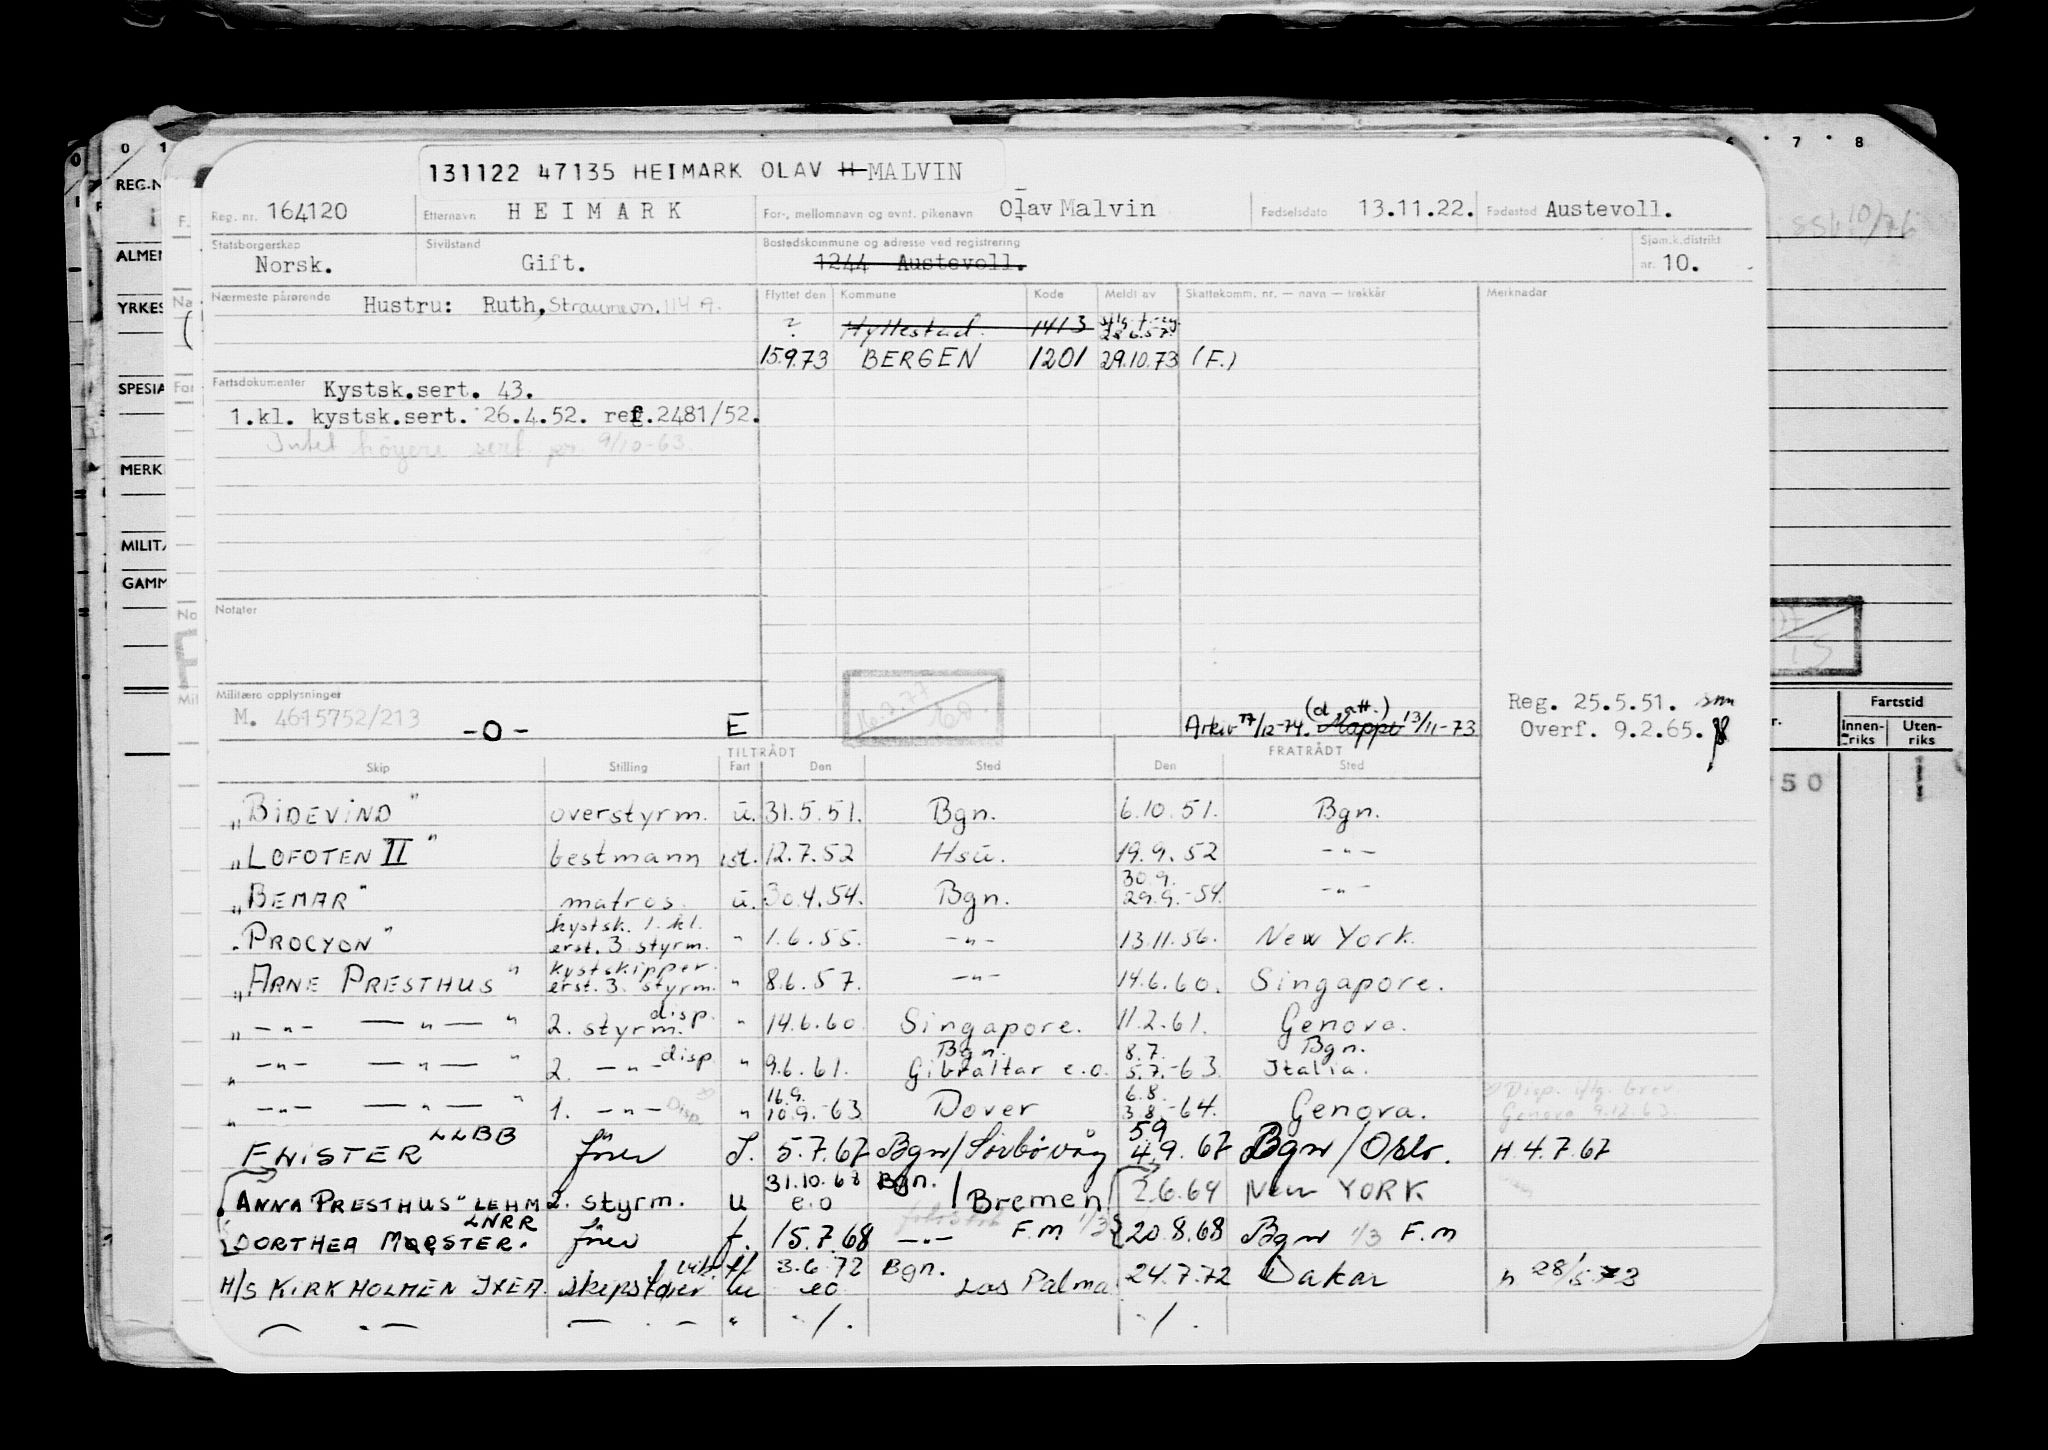 131122 47135 HEIMARK OLAV H MALVIN
Reg. nr. 164120 Etternavn HEIMARK For-, mellomnavn og evnt. pikenavn Olav Malvin Fødselsdato 13.11.22. Fødested Austevoll.
Statsborgerskap Norsk. Sivilstand Gift. Bostedskommune og adresse ved registrering 1244 Austevoll. Sjøm.k.distrikt nr. 10.
Nærmeste pårørende Hustru: Ruth, Straumevn. 114 A. Flyttet den Kommune Kode Meldt av Skattekomm. nr. — navn — trekkår Merknader
? Hyllestad. 1413 22.6.57.
15.9.73 BERGEN 1201 29.10.73 (F.)
Fartsdokumenter Kystsk.sert. 43.
1.kl. kystsk.sert. 26.4.52. ref.2481/52.
Intet høyere sert pr. 9/10-63.
Notater
Militære opplysninger
M. 4615752/213 -0- E
(d. att.)
Arkiv 17/12-74. Mappe 13/11-73
Reg. 25.5.51.
Overf. 9.2.65.
TILTRÅDT FRATRÅDT
Skip Stilling Fart Den Sted Den Sted
"BIDEVIND" overstyrm. u. 31.5.51. Bgn. 6.10.51. Bgn.
"LOFOTEN II" bestmann ist. 12.7.52 Hsu. 19.9.52 -"-
"BEMAR" matros. u. 30.4.54. Bgn. 30.9. 29.9.-54. -"-
"PROCYON" kystsk. 1. kl. erst. 3. styrm. " 1.6.55. -"- 13.11.56. New York.
"ARNE PRESTHUS" kystskipper. erst. 3. styrm. " 8.6.57. -"- 14.6.60. Singapore.
"-"- -"-" 2. styrm. disp. " 14.6.60. Singapore. 11.2.61. Genova.
"-"- -"-" 2. -"- disp " 9.6.61. Bgn. Gibraltar e.o. 8.7. 5.7.-63. Bgn. Italia.
"-"- -"-" 1. -"- Disp. " 16.9. 10.9.-63 Dover 6.8. 3.8.-64. Genova. Disp. iflg. brev Genova 9.12.63.
FNISTER LLBB fører I. 5.7.67 Bgn/Sørbøvåg 5.9 4.9.67 Bgn/Oslo. H. 4.7.67
ANNA PRESTHUS" LEHM 2. styrm. u 31.10.68 e.o Bgn. / Bremen 2.6.69 New YORK
DORTHEA MØGSTER. LNRR fører f. 15.7.68 -"- F.m 1/3 20.8.68 Bgn 1/3 F.m
M/S KIRKHOLMEN JXEA. u 3.6.72 eo Bgn. Las Palma 24.7.72 Dakar 28/5.73
- " - - . - " ./. ./.
REG.N
ALMEN
YRKES
SPESIA
MERK
MILITÆ
GAMM
7 8
Fartstid
Innen-riks Uten-riks
50